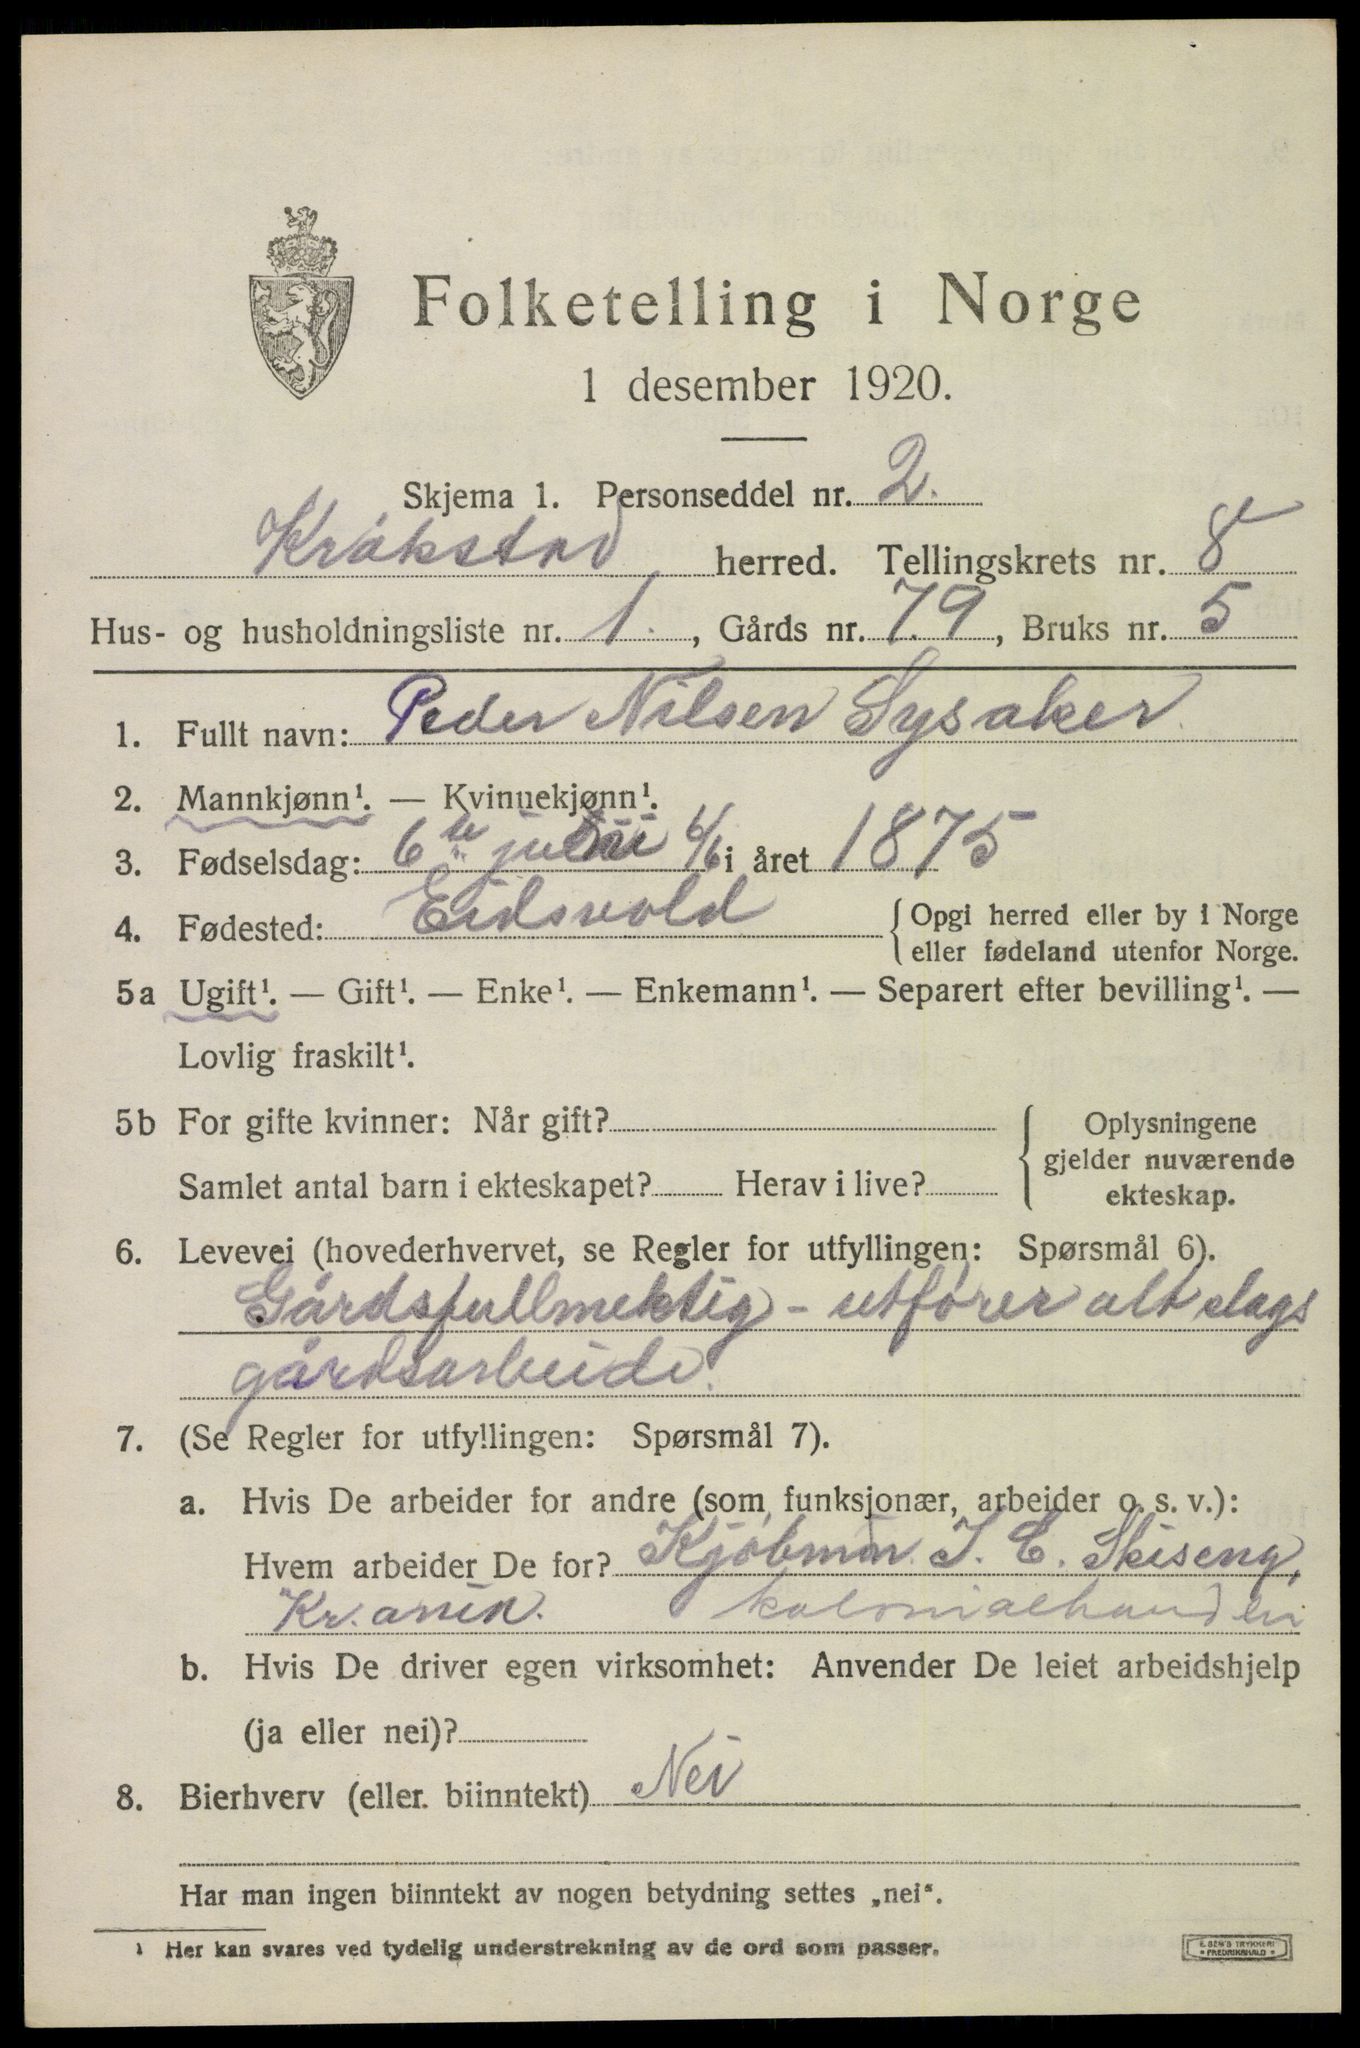 Folketelling i Norge
1 desember 1920.
Skjema 1. Personseddel nr. 2.
Kråkstad herred. Tellingskrets nr. 8
Hus- og husholdningsliste nr. 1. , Gårds nr. 79 , Bruks nr. 5
1. Fullt navn: Peder Nilsen Sysaker.
2. Mannkjønn¹. — Kvinnekjønn¹.
3. Fødselsdag: 6te juni 6/6 i året 1875
4. Fødested: Eidsvold { Opgi herred eller by i Norge
eller fødeland utenfor Norge.
5a Ugift¹. — Gift¹. — Enke¹. — Enkemann¹. — Separert efter bevilling¹. —
Lovlig fraskilt¹.
5b For gifte kvinner: Når gift? { Oplysningene
gjelder nuværende
Samlet antal barn i ekteskapet? Herav i live?
ekteskap.
6. Levevei (hovederhvervet, se Regler for utfyllingen: Spørsmål 6).
Gårdsfullmektig - utfører alt slags
gårdsarbeide.
7. (Se Regler for utfyllingen: Spørsmål 7).
a. Hvis De arbeider for andre (som funksjonær, arbeider o. s. v.):
Hvem arbeider De for? Kjøbman. J. E. Skiseng,
Kr.ania. kolonialhandler
b. Hvis De driver egen virksomhet: Anvender De leiet arbeidshjelp
(ja eller nei)?
8. Bierhverv (eller. biinntekt) Nei
Har man ingen biinntekt av nogen betydning settes „nei“.
¹ Her kan svares ved tydelig understrekning av de ord som passer.
E. SEM'S TRYKKERI
FREDRIKSHALD